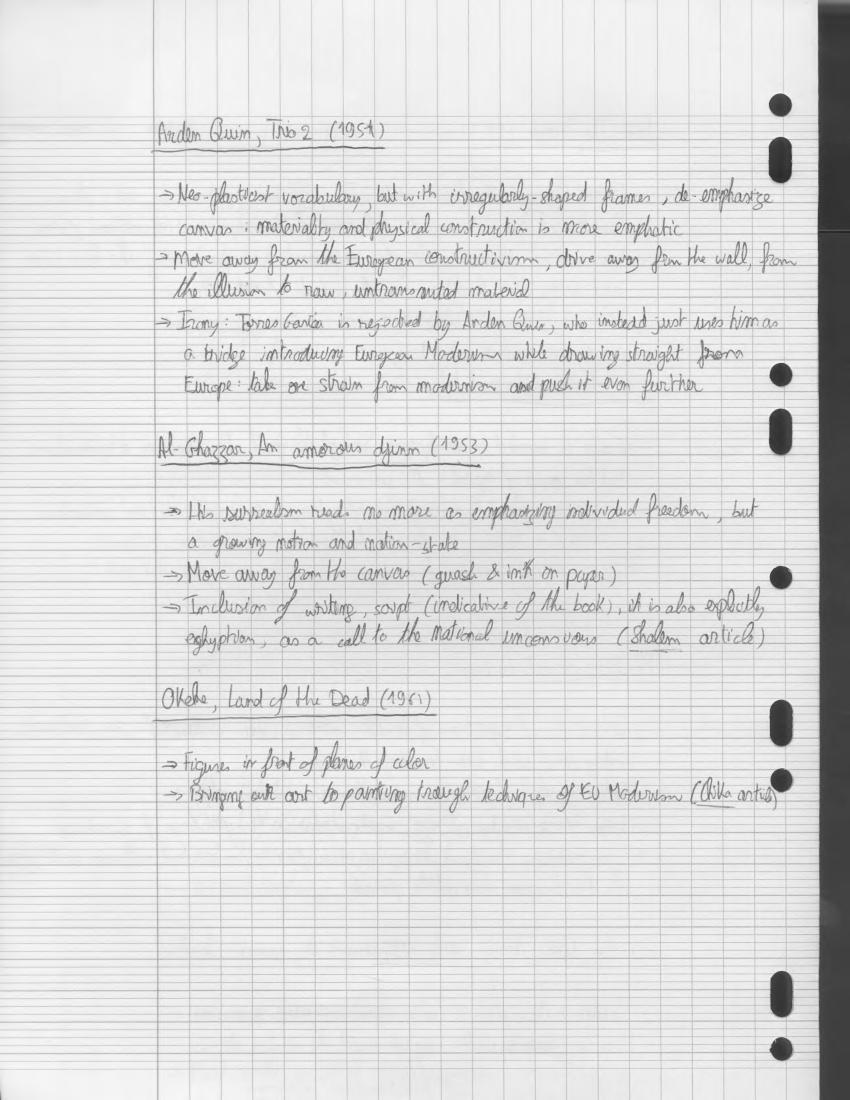 Arden Quin, Trio 2 (1951)
→ Neo-plasticist vocabulary, but with irregularly-shaped frames, de-emphasize
canvas : materiality and physical construction is more emphatic
→ Move away from the European constructivism, drive away from the wall, from
the illusion to raw, untransmuted material
→ Irony : Torres Garcia is rejected by Arden Quin, who instead just uses him as
a bridge introducing European Modernism while drawing straight from
Europe : take one strain from modernism and push it even further
Al-Ghazzar, An amorous djinn (1953)
→ His surrealism reads no more as emphasizing individual freedom, but
a growing notion and nation-state
→ Move away from the canvas (guash & ink on paper)
→ Inclusion of writing, script (indicative of the book), it is also explicitly
eghyptian, as a call to the national (Shalem article)
Okeke, Land of the Dead (1961)
→ Figures in front of planes of color
→ Bringing art to painting trough techniques of EU Modernism (Chika